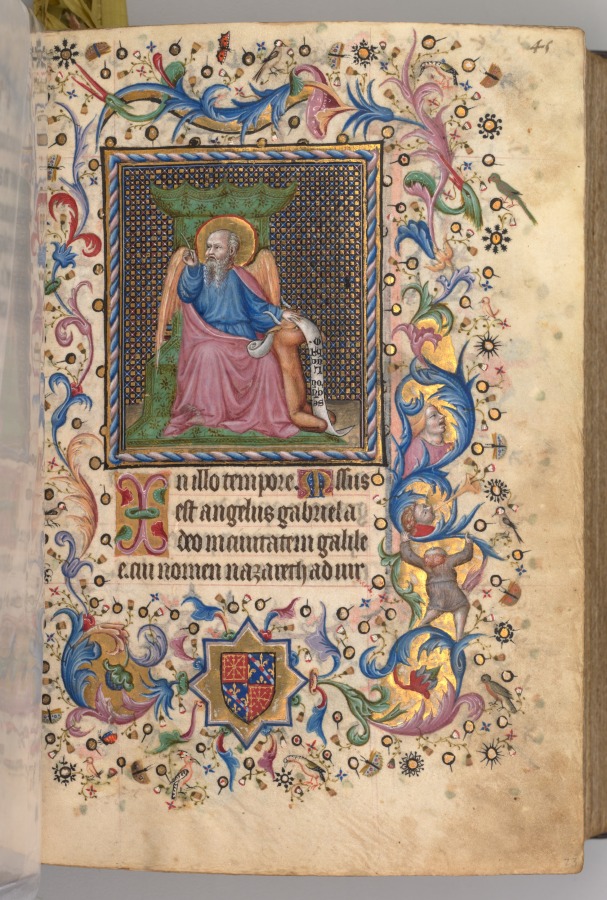 45
In illo tempore. Missus
est angelus gabriel a
deo in ciuitatem galile
e. cui nomen nazareth ad uir